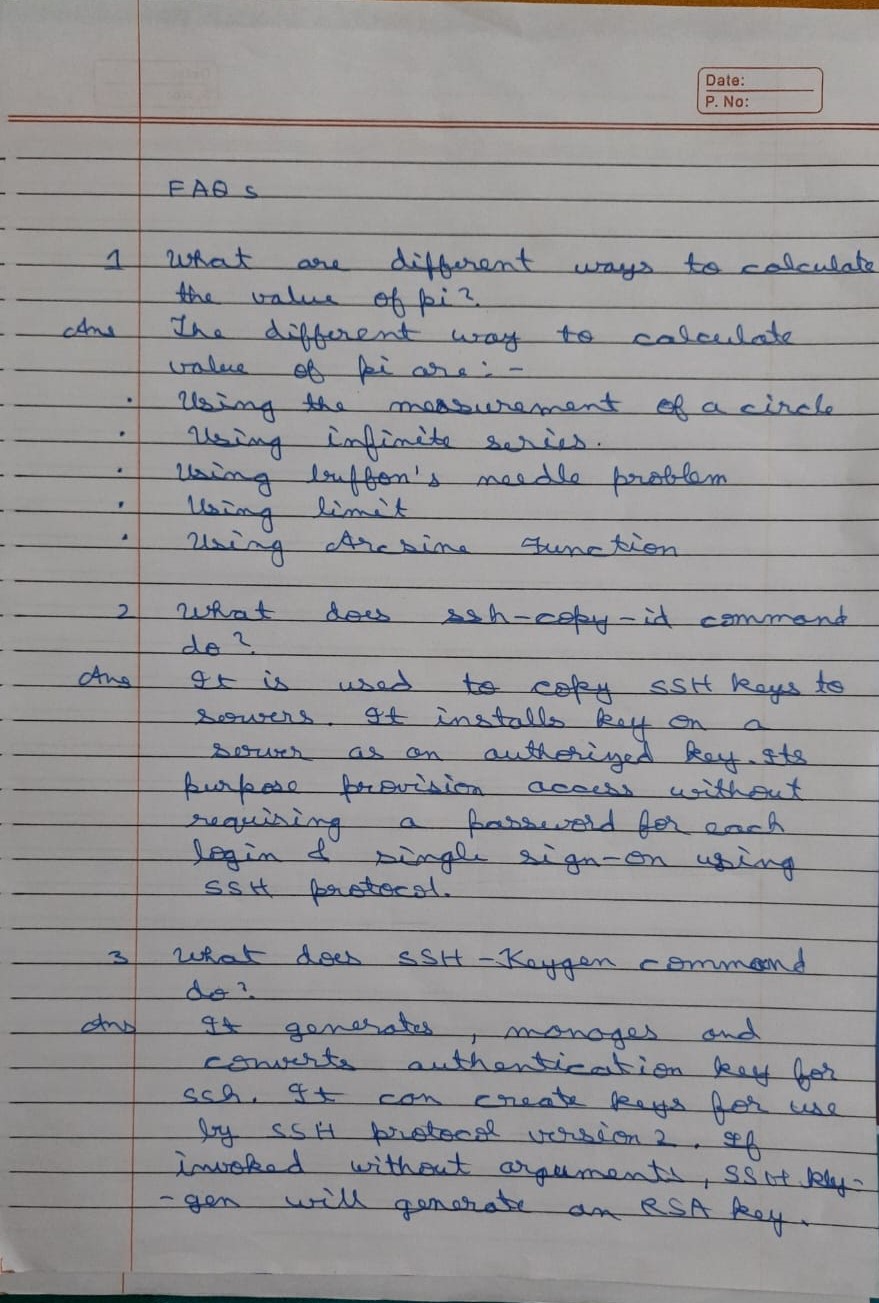 Date:
P. No:
FAQs
1 What are different ways to calculate
the value of pi?
Ans The different way to calculate
value of pi are:-
• Using the measurement of a circle
• Using infinite series.
• Using buffon's needle problem
• Using limit
• Using Arcsine Function
2 What does ssh-copy-id command
do?
Ans It is used to copy SSH keys to
servers. It installs key on a
server as an authorized key. Its
purpose provision access without
requiring a password for each
login & single sign-on using
SSH protocol.
3 What does SSH-Keygen command
do?
Ans It generates, manages and
converts authentication key for
ssh. It can create keys for use
by SSH protocol version 2. If
invoked without arguments, SSH key-
-gen will generate an RSA key.